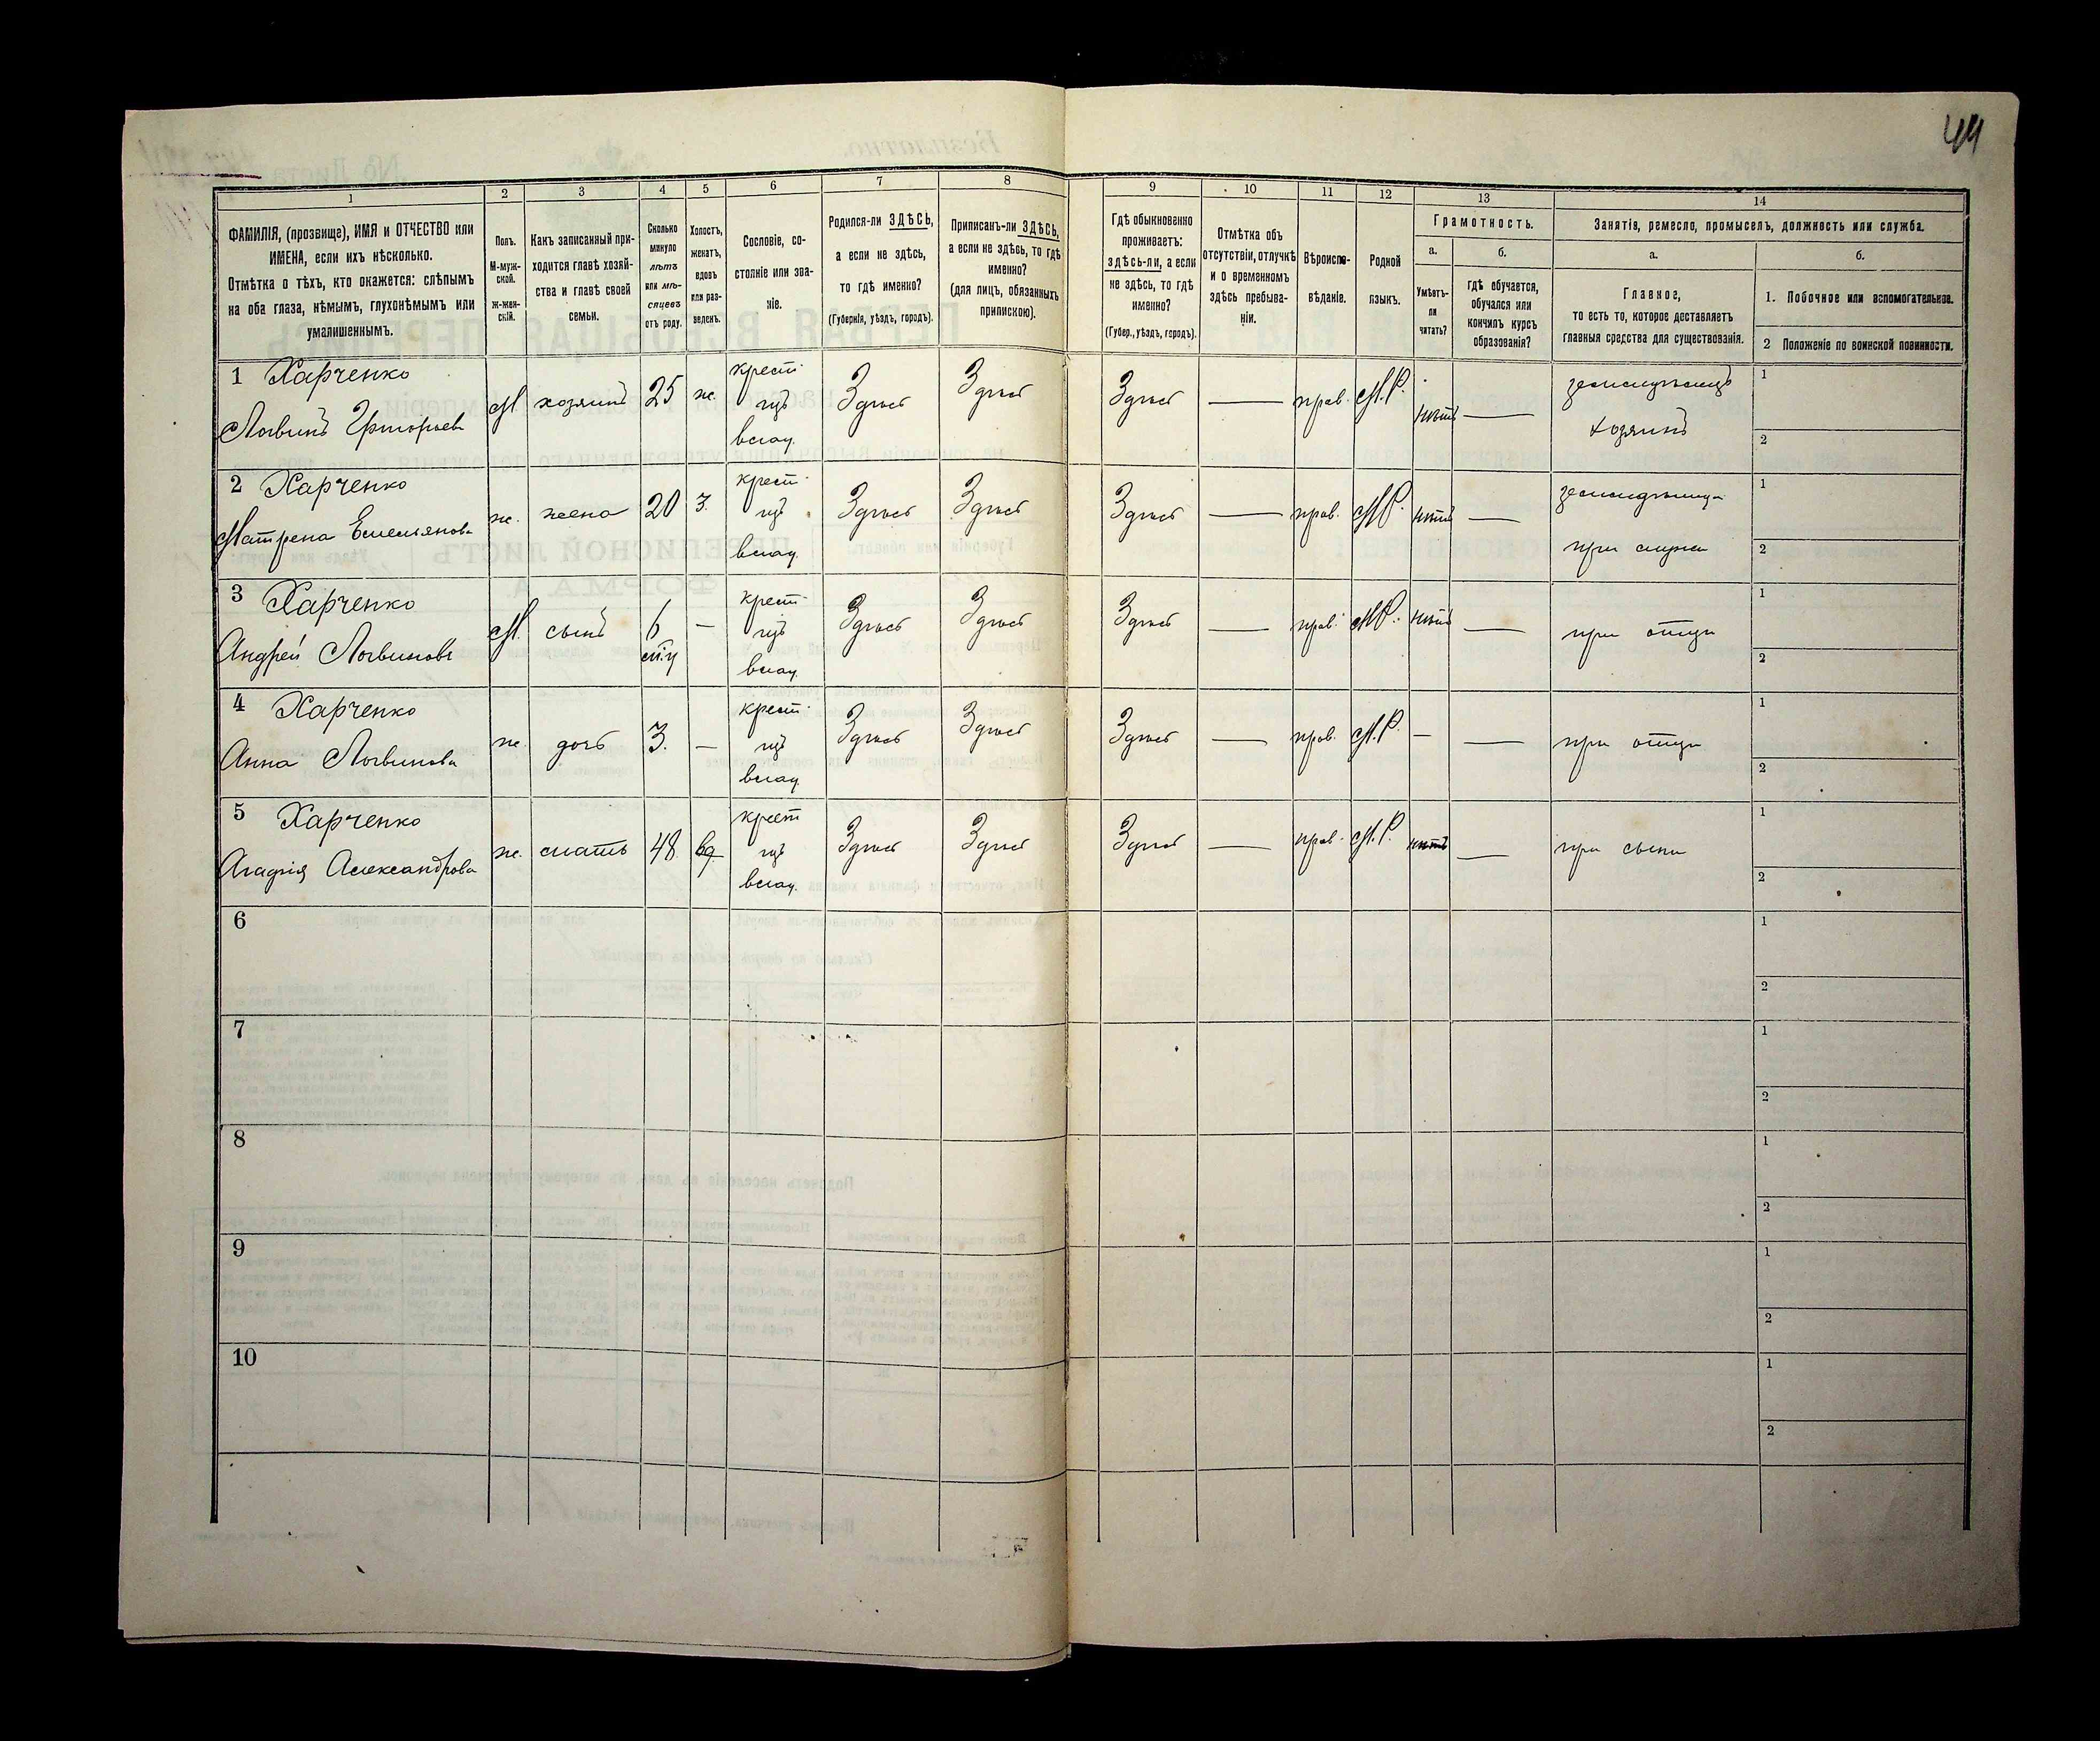 44
1 2 3 4 5 6 7 8 9 10 11 12 13 14
ФАМИЛІЯ, (прозвище), ИМЯ и ОТЧЕСТВО или
ИМЕНА, если ихъ нѣсколько.
Отмѣтка о тѣхъ, кто окажется: слѣпымъ
на оба глаза, нѣмымъ, глухонѣмымъ или
умалишеннымъ.
Полъ.
М-муж-
ской.
Ж-жен-
скій.
Какъ записанный при-
ходится главѣ хозяй-
ства и главѣ своей
семьи.
Сколько
минуло
лѣтъ
или мѣ-
сяцевъ
отъ роду.
Холостъ,
женатъ,
вдовъ
или раз-
веденъ.
Сословіе, со-
стояніе или зва-
ніе.
Родился-ли ЗДѢСЬ,
а если не здѣсь,
то гдѣ именно?
(Губернія, уѣздъ, городъ).
Приписанъ-ли ЗДѢСЬ,
а если не здѣсь, то гдѣ
именно?
(для лицъ, обязанныхъ
припискою).
Гдѣ обыкновенно
проживаетъ:
здѣсь-ли, а если
не здѣсь, то гдѣ
именно?
(Губер., уѣздъ, городъ).
Отмѣтка объ
отсутствіи, отлучкѣ
и о временномъ
здѣсь пребыва-
ніи.
Вѣроиспо-
вѣданіе.
Родной
языкъ.
Грамотность.
а.
Умѣетъ-
ли
читать?
б.
гдѣ обучается,
обучался или
кончилъ курсъ
образованія?
Занятія, ремесло, промыселъ, должность или служба.
а.
Главное,
то есть то, которое доставляетъ
главныя средства для существованія.
б.
1. Побочное или вспомогательное.
2 Положеніе по воинской повинности.
1 Харченко
Логвинъ Григорьевъ
М хозяинъ 25 ж. крест. изъ влад. Здѣсь Здѣсь Здѣсь — прав. М.Р. нѣтъ — земледѣлецъ
хозяинъ
1
2
2 Харченко
Матрена Емельянова
ж. жена 20 з. крест. изъ влад. Здѣсь Здѣсь Здѣсь — прав. М.Р. нѣтъ — земледѣлица
при мужи
1
2
3 Харченко
Андрей Логвиновъ
М. сынъ 6 — крест. изъ влад. Здѣсь Здѣсь Здѣсь — прав. М.Р. нѣтъ — при отци
1
2
4 Харченко
Анна Логвинова
ж. дочь 3. — крест. изъ влад. Здѣсь Здѣсь Здѣсь — прав. М.Р. — — при отци
1
2
5 Харченко
Агафія Александрова
ж. мать 48 вд. крест изъ влад. Здѣсь Здѣсь Здѣсь — прав. М.Р. нѣтъ — при сыни
1
2
6
1
2
7
1
2
8
1
2
9
1
2
10
1
2